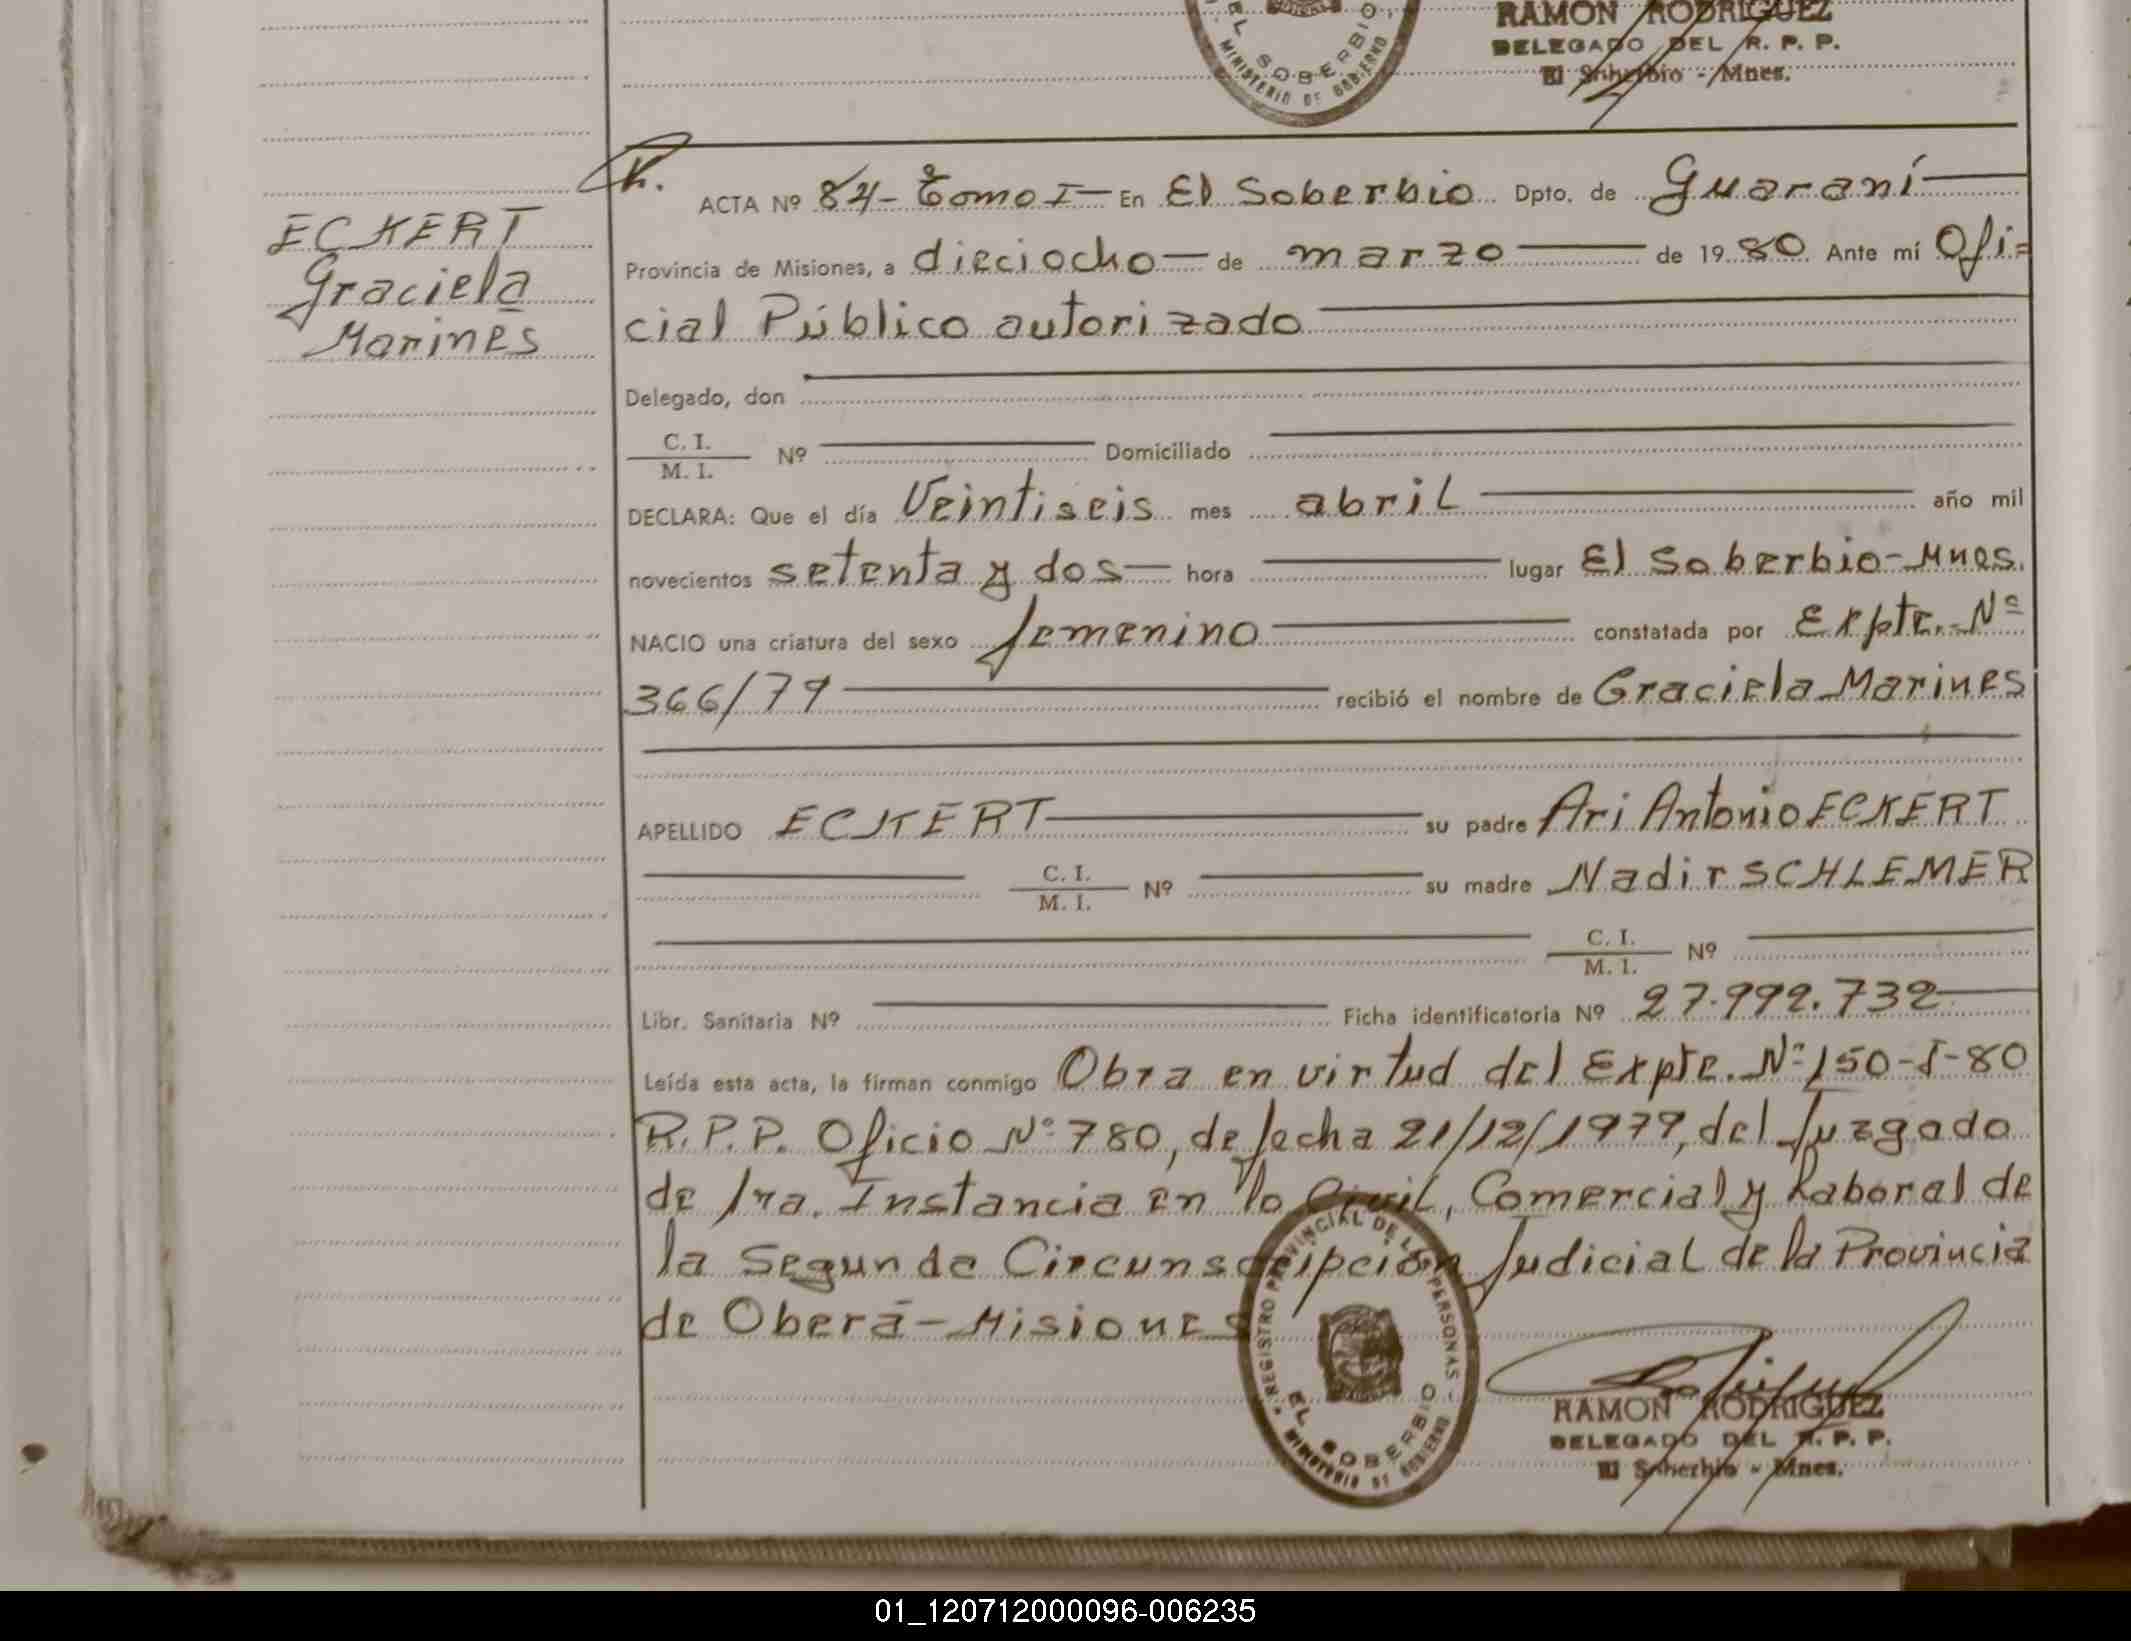 EL SOBERBIO
MINISTERIO DE GOBIERNO
RAMON RODRIGUEZ
DELEGADO DEL R. P. P.
El Soberbio - Mnes.
ECKERT
Graciela
Marines
ACTA Nº 84- Tomo I En El Soberbio Dpto. de Guaraní
Provincia de Misiones, a dieciocho de marzo de 1980 Ante mí Ofi=
cial Público autorizado
Delegado, don
C. I.
M. I. Nº Domiciliado
DECLARA: Que el día Veintiseis mes abril año mil
novecientos setenta y dos hora lugar El Soberbio-Mnes.
NACIO una criatura del sexo femenino constatada por Expte. Nº
366/79 recibió el nombre de Graciela Marines
APELLIDO ECKERT su padre Ari Antonio ECKERT
C. I.
M. I. Nº su madre Nadir SCHLEMER
C. I.
M. I. Nº
Libr. Sanitaria Nº Ficha identificatoria Nº 27.992.732
Leída esta acta, la firman conmigo Obra en virtud del Expte. Nº 150-I-80
R.P.P. Oficio Nº 780, de fecha 21/12/1979, del Juzgado
de 1ra. Instancia en lo Civil, Comercial y Laboral de
la Segunda Circunscripción Judicial de la Provincia
de Oberá-Misiones
REGISTRO PROVINCIAL DE LAS PERSONAS
EL SOBERBIO
MINISTERIO DE GOBIERNO
RAMON RODRIGUEZ
DELEGADO DEL R. P. P.
El Soberbio - Mnes.
01_120712000096-006235